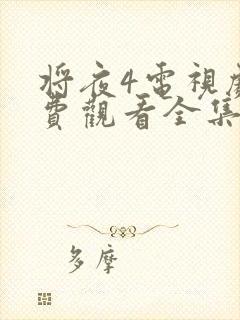 将夜4電視劇
費觀看全集
多摩